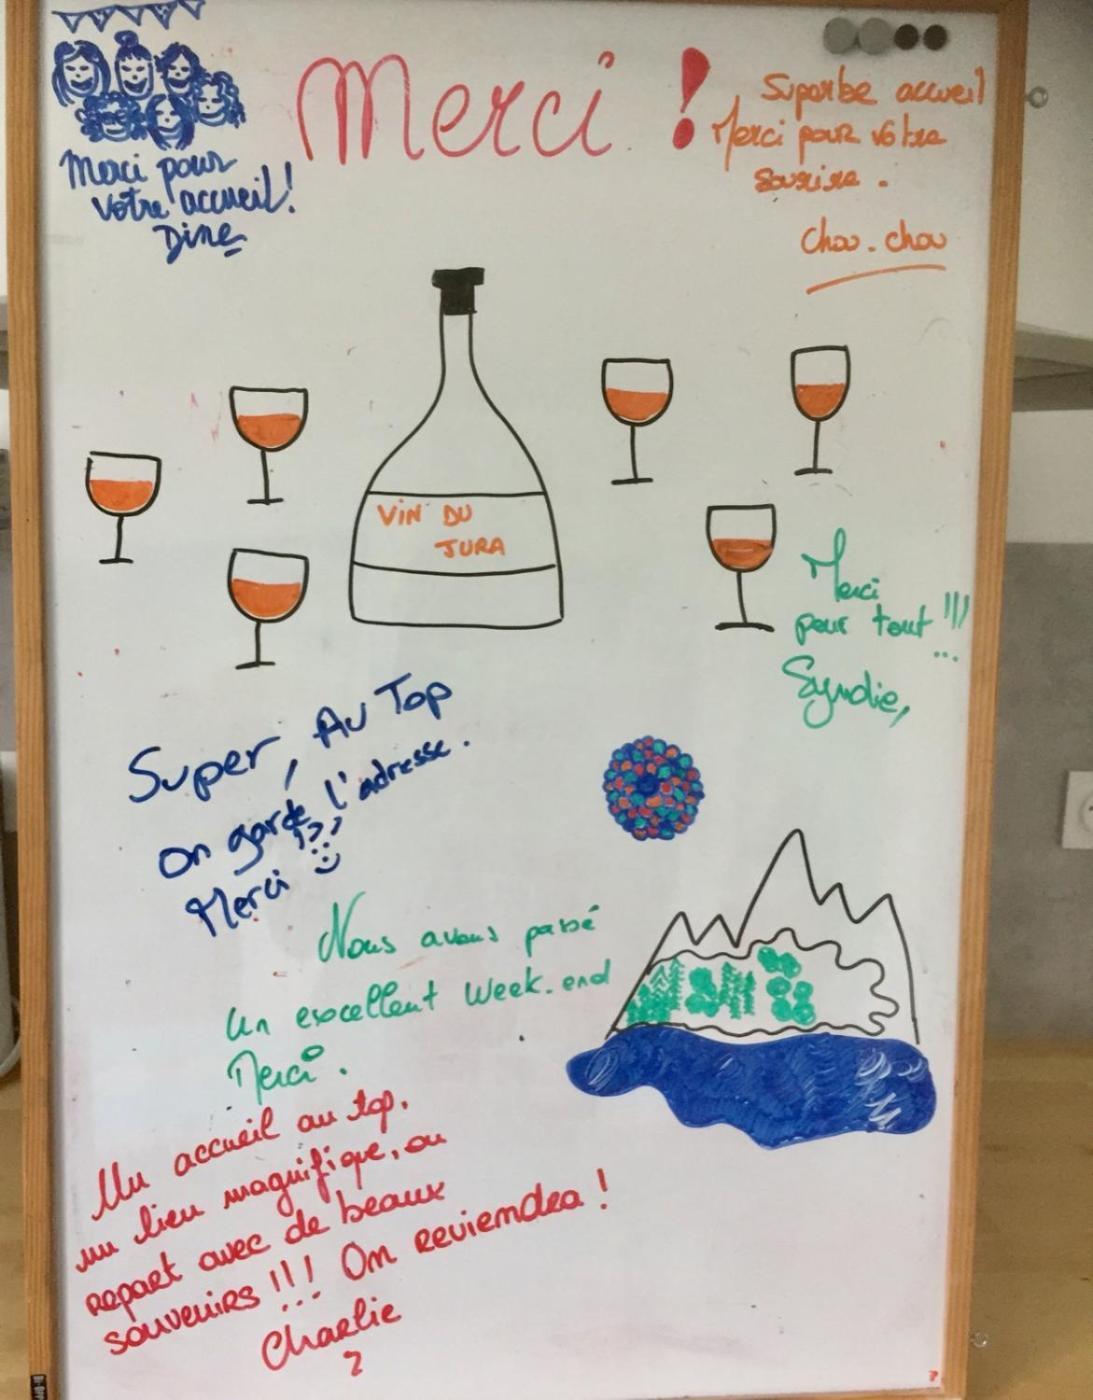 Merci !
Merci pour
votre accueil !
Dine
Superbe accueil
Merci pour votre
sourire .
Chou . chou
VIN DU
JURA
Merci
pour tout !!!
Syndie,
Super, Au Top
on garde l'adresse .
Merci
Nous avons passé
Un excellent Week-end
Merci .
Un accueil au top,
un lieu magnifique, on
repart avec de beaux
souvenirs !!! On reviendra !
Charlie